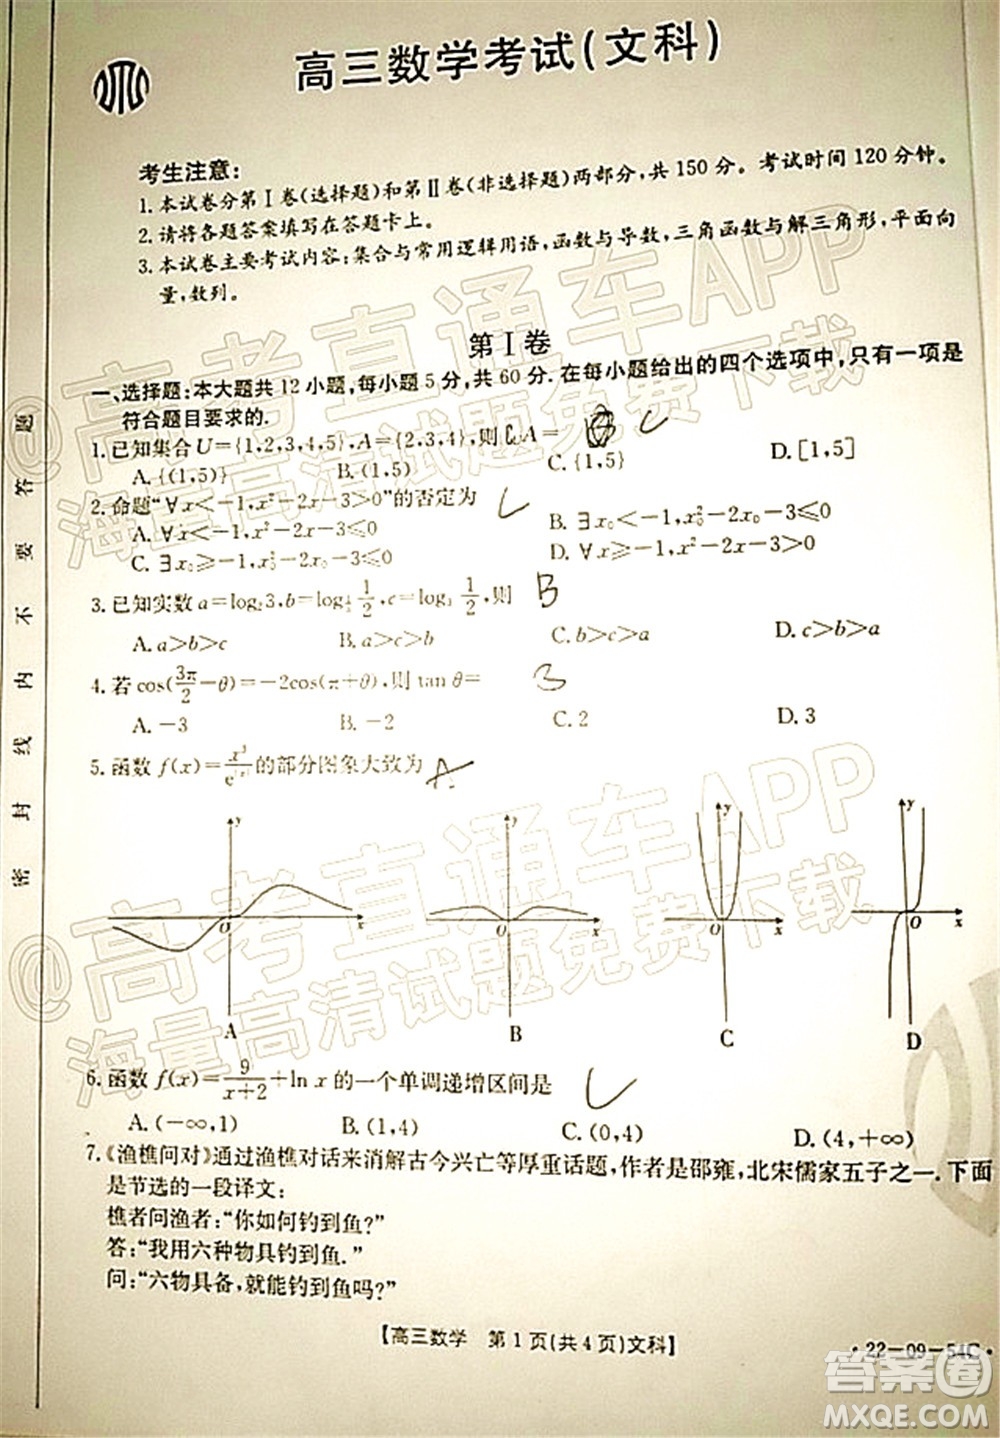 高三数学考试(文科)
考生注意:
1.本试卷分第Ⅰ卷(选择题)和第Ⅱ卷(非选择题)两部分,共150分。考试时间120分钟。
2.请将各题答案填写在答题卡上。
3.本试卷主要考试内容:集合与常用逻辑用语,函数与导数,三角函数与解三角形,平面向
量,数列。
第Ⅰ卷
一、选择题:本大题共12小题,每小题5分,共60分.在每小题给出的四个选项中,只有一项是
符合题目要求的.
1.已知集合U={1,2,3,4,5},A={2,3,4},则∁UA= C
A.{(1,5)} B.(1,5) C.{1,5} D.[1,5]
2.命题“∀x<-1,x²-2x-3>0”的否定为
A.∀x<-1,x²-2x-3≤0 B.∃x₀<-1,x₀²-2x₀-3≤0
C.∃x₀≥-1,x₀²-2x₀-3≤0 D.∃x₀≥-1,x²-2x-3>0
3.已知实数a=log₂3,b=log 1/2,c=log₃ 1/2,则 B
A.a>b>c B.a>c>b C.b>c>a D.c>b>a
4.若cos(3π/2-θ)=-2cos(π+θ),则tan θ= B
A.-3 B.-2 C.2 D.3
5.函数f(x)=x³/e^|x|的部分图象大致为 A
y x O A
y x O B
y x O C
y x O D
6.函数f(x)=9/(x+2)+ln x的一个单调递增区间是
A.(-∞,1) B.(1,4) C.(0,4) D.(4,+∞)
7.《渔樵问对》通过渔樵对话来消解古今兴亡等厚重话题,作者是邵雍,北宋儒家五子之一.下面
是节选的一段译文:
樵者问渔者:“你如何钓到鱼?”
答:“我用六种物具钓到鱼.”
问:“六物具备,就能钓到鱼吗?”
【高三数学 第1页(共4页)文科】
·22-09-54C·
密 封 线 内 不 要 答 题
@高考直通车APP
海量高清试题免费下载
@高考直通车APP
海量高清试题免费下载
答案圈
MXQE.COM